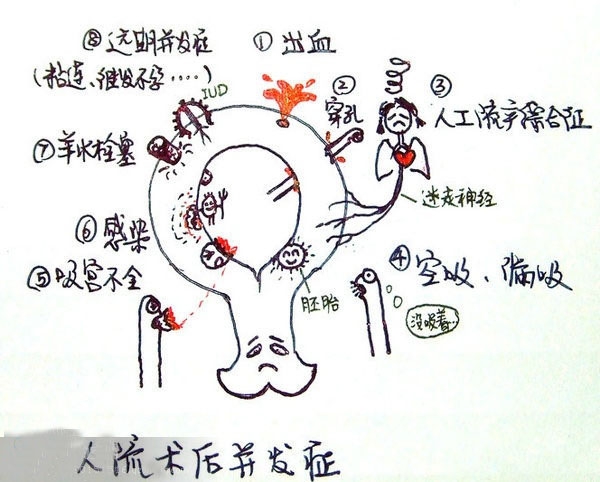 ⑧远期并发症
(粘连、继发不孕....)
IUD
①出血
②
穿孔
③
人工流产综合征
迷走神经
⑦羊水栓塞
⑥感染
⑤吸宫不全
胚胎
④空吸、漏吸
没吸着...
人流术后并发症